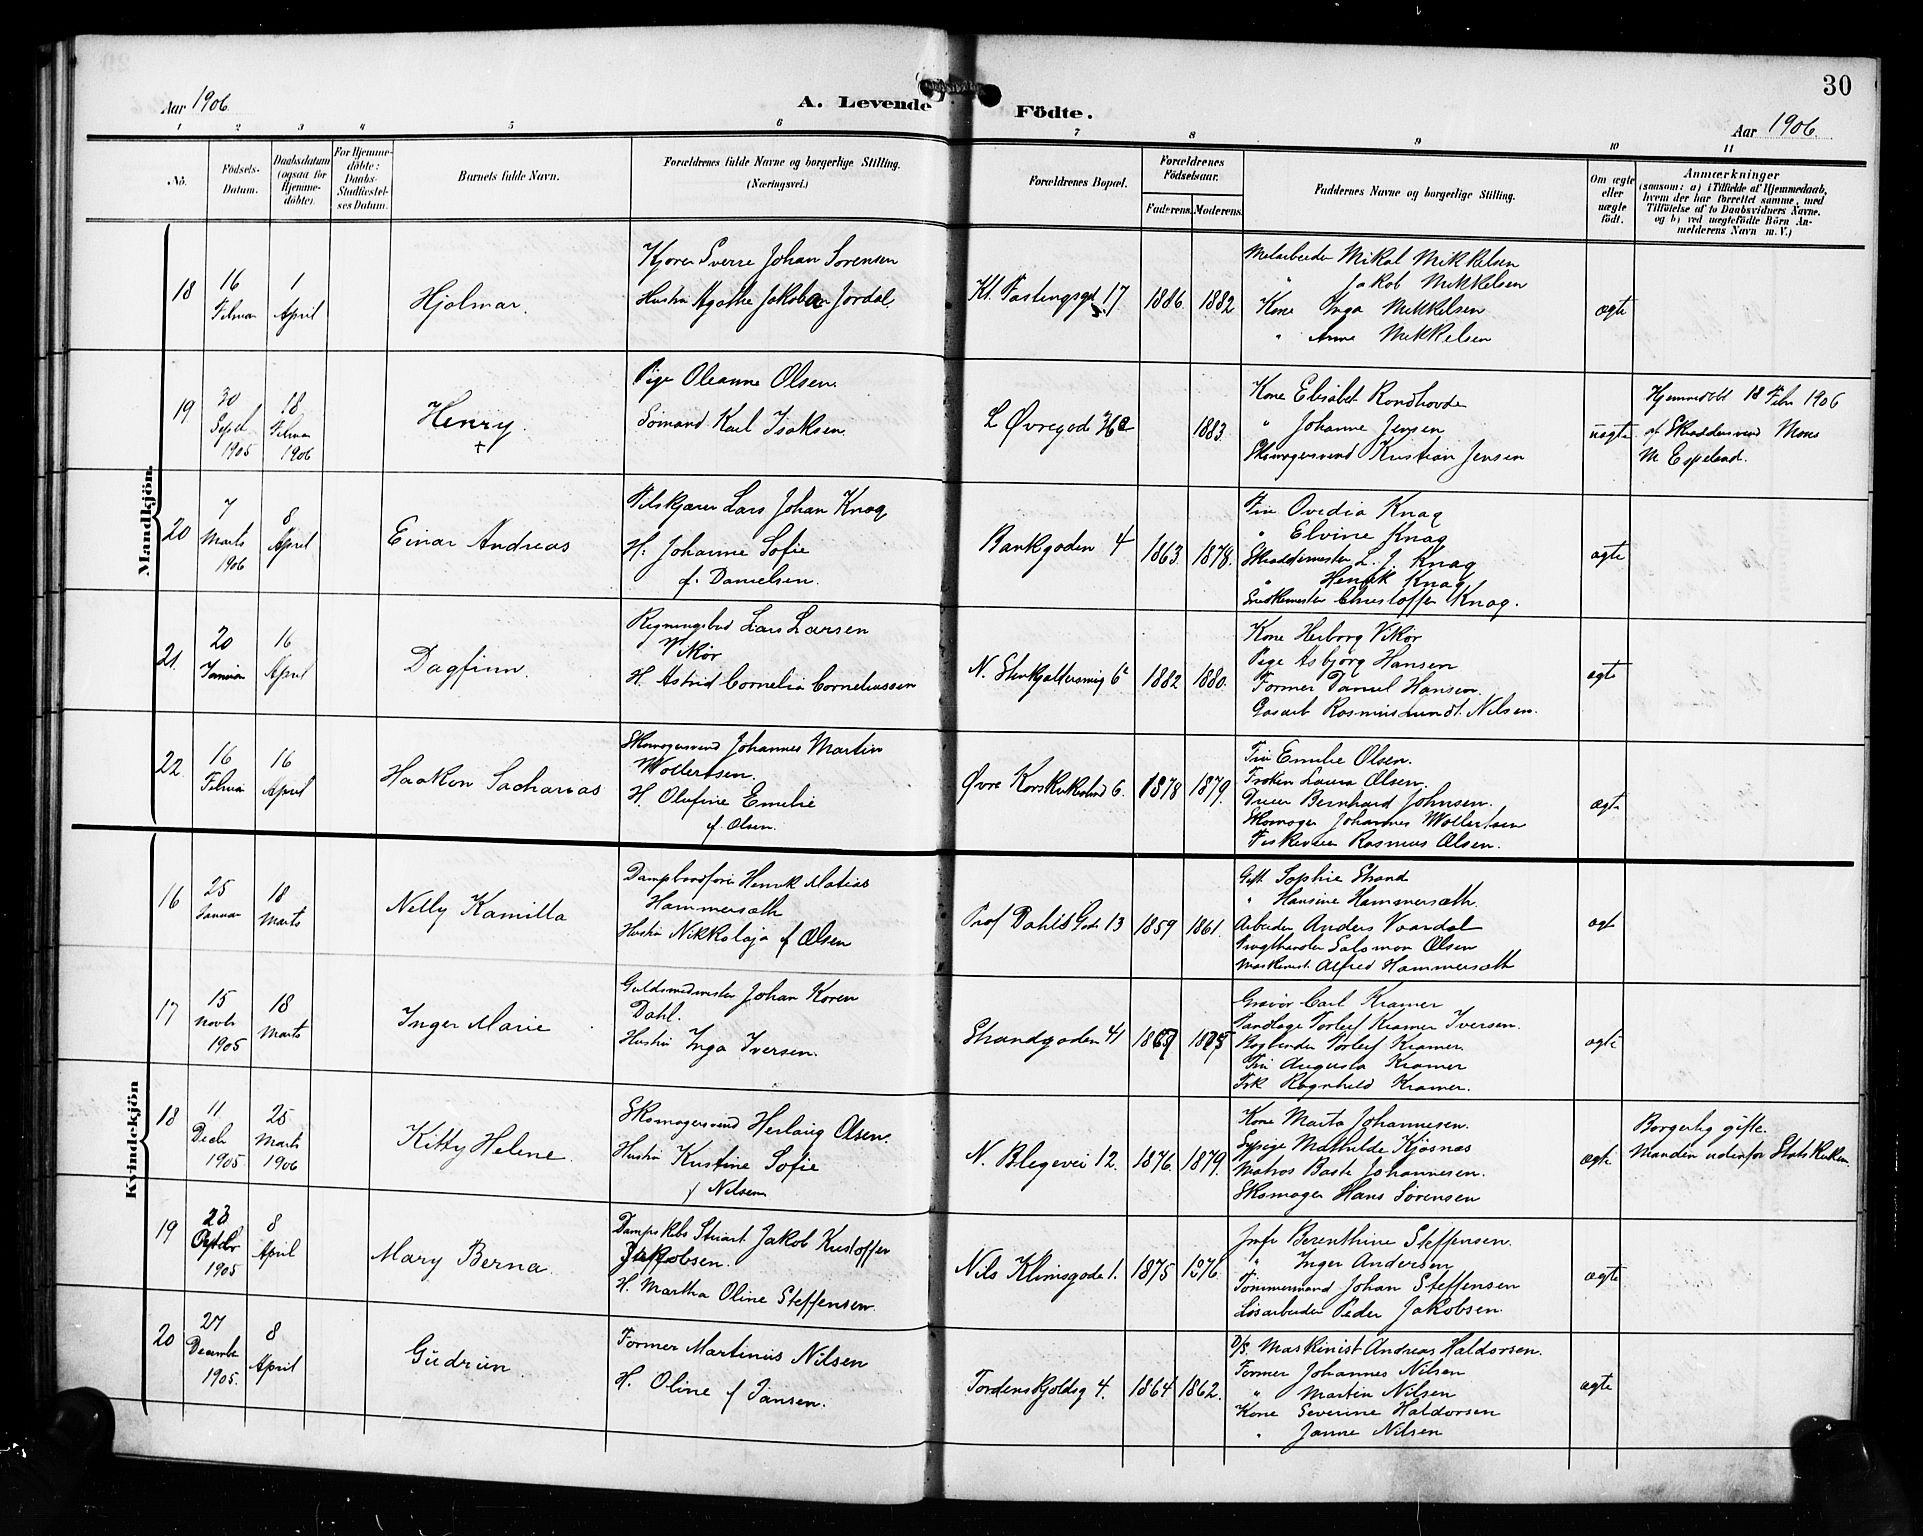 30
Aar 1906.
A. Levende Födte.
Aar 1906.
1 2 3 4 5 6 7 8 9 10 11
No.
Födsels-Datum.
Daabsdatum (ogsaa for Hjemmedöbte).
For Hjemmedöbte: Daabs-Stadfæstelses Datum.
Barnets fulde Navn.
Forældrenes fulde Navne og borgerlige Stilling. (Næringsvei.)
Forældrenes Bopæl.
Forældrenes Födselsaar.
Faderens. Moderens.
Faddernes Navne og borgerlige Stilling.
Om ægte eller uægte født.
Anmærkninger
(saasom: a) i Tilfælde af Hjemmedaab, hvem der har forrettet samme, med Tilföielse af to Daabsvidners Navne. og b) ved uegtefödte Börn Anmelderens Navn m. V.)
Mandkjön.
18
16 Februar
1 April
Hjalmar.
Kjører Sverre Johan Sørensen
Hustru Agathe Jakoba Jordal
Kl. Fastingsgd 17
1886. 1882
Mikal Mikkelsen
" Jakob Mikkelsen
Kone Inga Mikkelsen
" Anna Mikkelsen
ægte
19
30 Septr 1905
18 Februar 1906
Henry.
+
Pige Oleanne Olsen.
Sømand Karl Isaksen.
L Øvregad 36a
1883.
Kone Elisabet Rondhovde
" Johanne Jensen
Skomagersvend Kristian Jensen
uægte
Hjemmedøbt 18 Febr 1906
af Skræddersvend Mons
M Espeland.
20
7 Marts 1906
8 April
Einar Andreas
Lars Johan Knag
H. Johanne Sofie
f. Danielsen.
Bankgaden 4
1863. 1878.
Fru Ovedia Knag
" Elvine Knag
Skræddermester L. J. Knag
" Henrik Knag
Snedkermester Christoffer Knag.
ægte
21.
20 Januar
16 April
Dagfinn.
Regningsbud Lars Larsen
Vikør
H. Astrid Cornelia Corneliussen
N. Stenkjeldersmug 6c
1882 1880.
Kone Herborg Vikør
Pige Asbjørg Hansen
Former Daniel Hansen.
Gasarb Rasmus Lundt. Nilsen.
ægte
22.
16 Februar
16 April
Haakon Sacharias
Skomagersvend Johannes Martin
Wollertsen.
H. Olufine Emelie
f. Olsen.
Øvre Korskirkealmd 6.
1878 1879.
Fru Emelie Olsen.
Frøken Laura Olsen.
Bernhard Johnsen.
Skomager Johannes Wollertsen
Rasmus Olsen.
ægte
Kvindekjön
16
25 Januar
18 Marts
Nelly Kamilla
Dampbaadfører Henrik Matias
Hammersøth
Hustru Nikkolaja f Olsen
Prof Dahls Gade 13
1859 1861.
Gift. Sophie Strand
" Hansine Hammersøth.
Arbeider Anders Vaardal
Salomon Olsen
Maskinist. Alfred Hammersøth
ægt
17
15 Novbr 1905
18 Marts
Inger Marie
Guldsmedmester Johan Koren
Dahl.
Hustru Inga Iversen.
Strandgaden 41
1867 1875
Gravør Carl Kramer
Tandlæge Torleif Kramer Iversen.
Bogbinder Torleif Kramer.
Fru Augusta Kramer
Frk Ragnhild Kramer.
ægte
18
11 Decbr 1905.
25 Marts 1906
Kitty Helene.
Skomagersvend Herlaug Olsen.
Hustru Kristine Sofie
f Nilsen
N. Blegevei 12.
1876. 1879.
Kone Marta Johannesen.
Sypige Mathilde Kjøsnæs
Matros Baste Johannesen.
Skomager Hans Sørensen
ægte
Borgerlig gifte.
Manden udenfor Statskirken
19
23 Octobr 1905
8 April
Mary Berna.
Dampskibs Stuert Jakob Kristoffer
Jakobsen.
H. Martha Oline Steffensen.
Nils Klimsgade 1.
1875 1876.
Jmfr Berenthine Steffensen.
" Inger Andersen
Tømmermand Johan Steffensen
Løsarbeider Peder Jakobsen.
ægte
20
27 December 1905.
8 April
Gudrun
Former Martinus Nilsen
H. Oline f Jansen.
Tordenskjoldsg 4.
1864 1862.
D/S. Maskinist Andreas Haldorsen.
Former Johannes Nilsen
" Martin Nilsen
Kone Severine Haldorsen
" Janne Nilsen
ægte